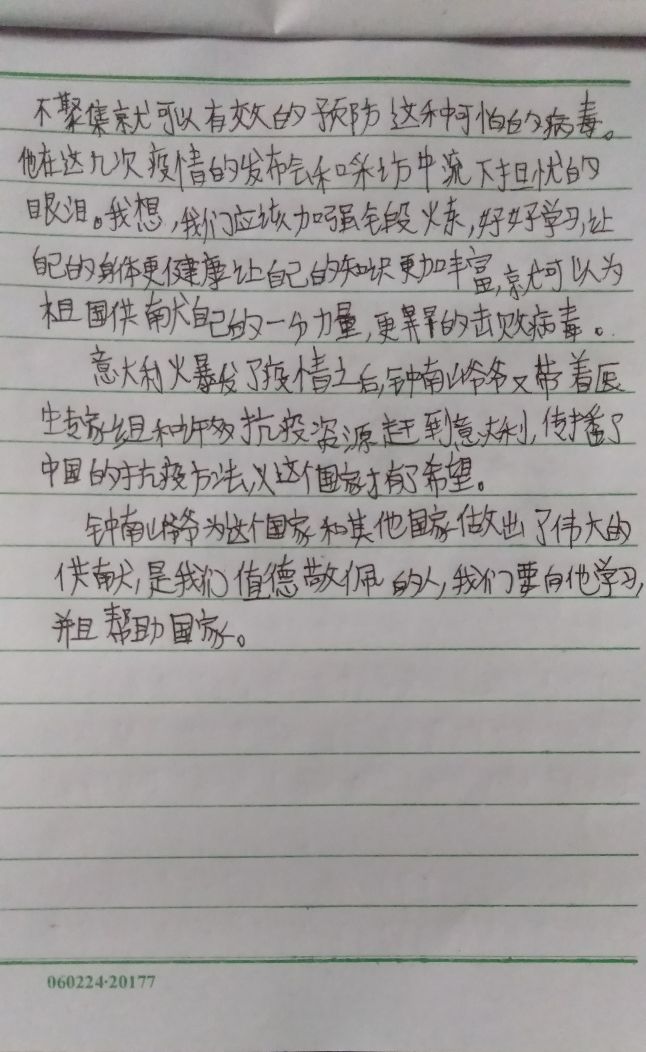 不聚集就可以有效的预防这种可怕的病毒。
他在这几次疫情的发布会和采访中流下担忧的
眼泪。我想,我们应该加强锻炼,好好学习,让
自己的身体更健康让自己的知识更加丰富,就可以为
祖国供献自己的一分力量,更早早的击败病毒。
意大利火暴发了疫情之后,钟南山爷爷又带着医
生专家组和许多抗疫资源赶到意大利,传播了
中国的对抗疫方法,这个国家才有了希望。
钟南山爷爷为这个国家和其他国家做出了伟大的
供献,是我们值德敬佩的人,我们要向他学习,
并且帮助国家。
060224·20177